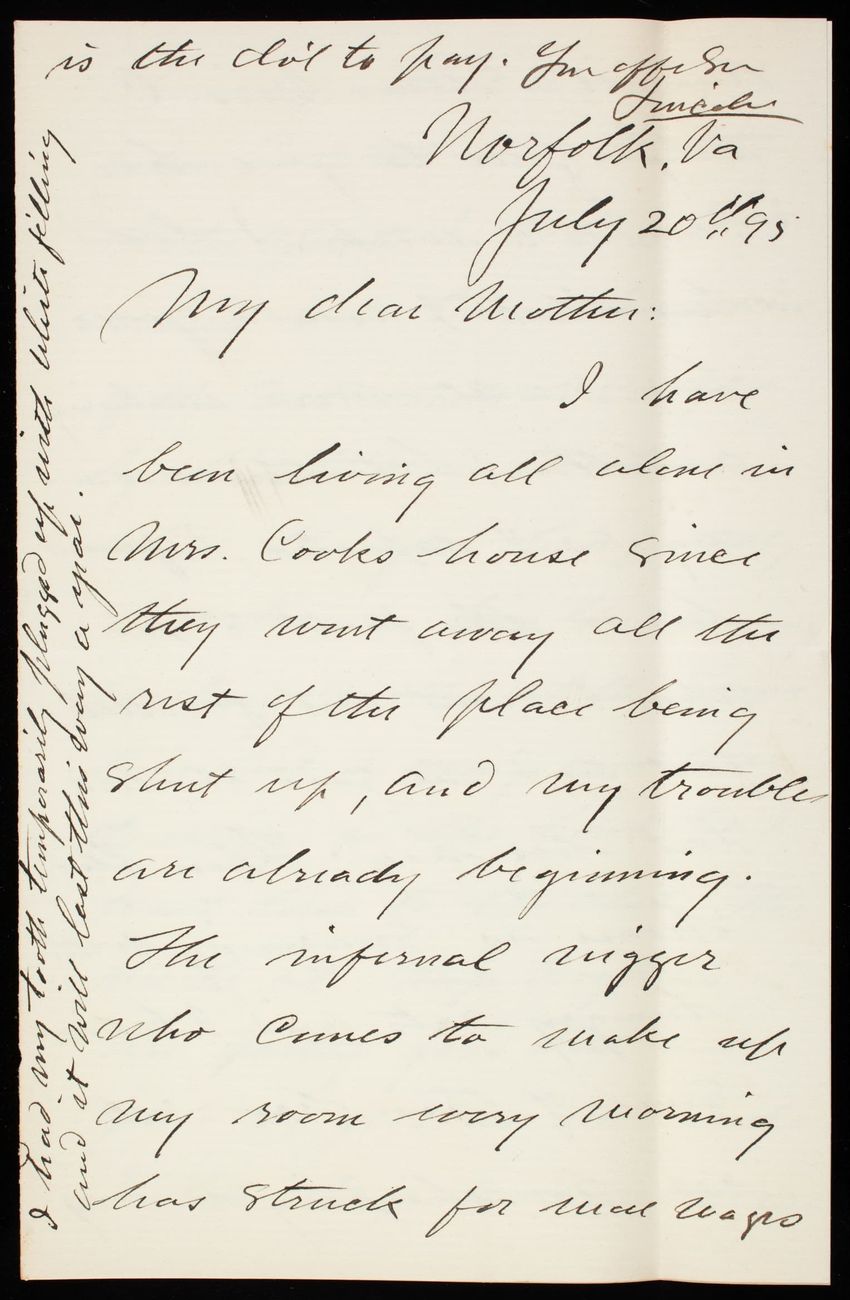 is the do'l to pay. Yr affec Son
Lincoln
Norfolk, Va
July 20th 95
My dear Mother:
I have
been living all alone in
Mrs. Cooks house since
they went away all the
rest of the place being
shut up, and my troubles
are already beginning.
The infernal nigger
who comes to make up
my room every morning
has struck for more wages
I had my tooth temporarily plugged up with white filling
and it will last this way a year.